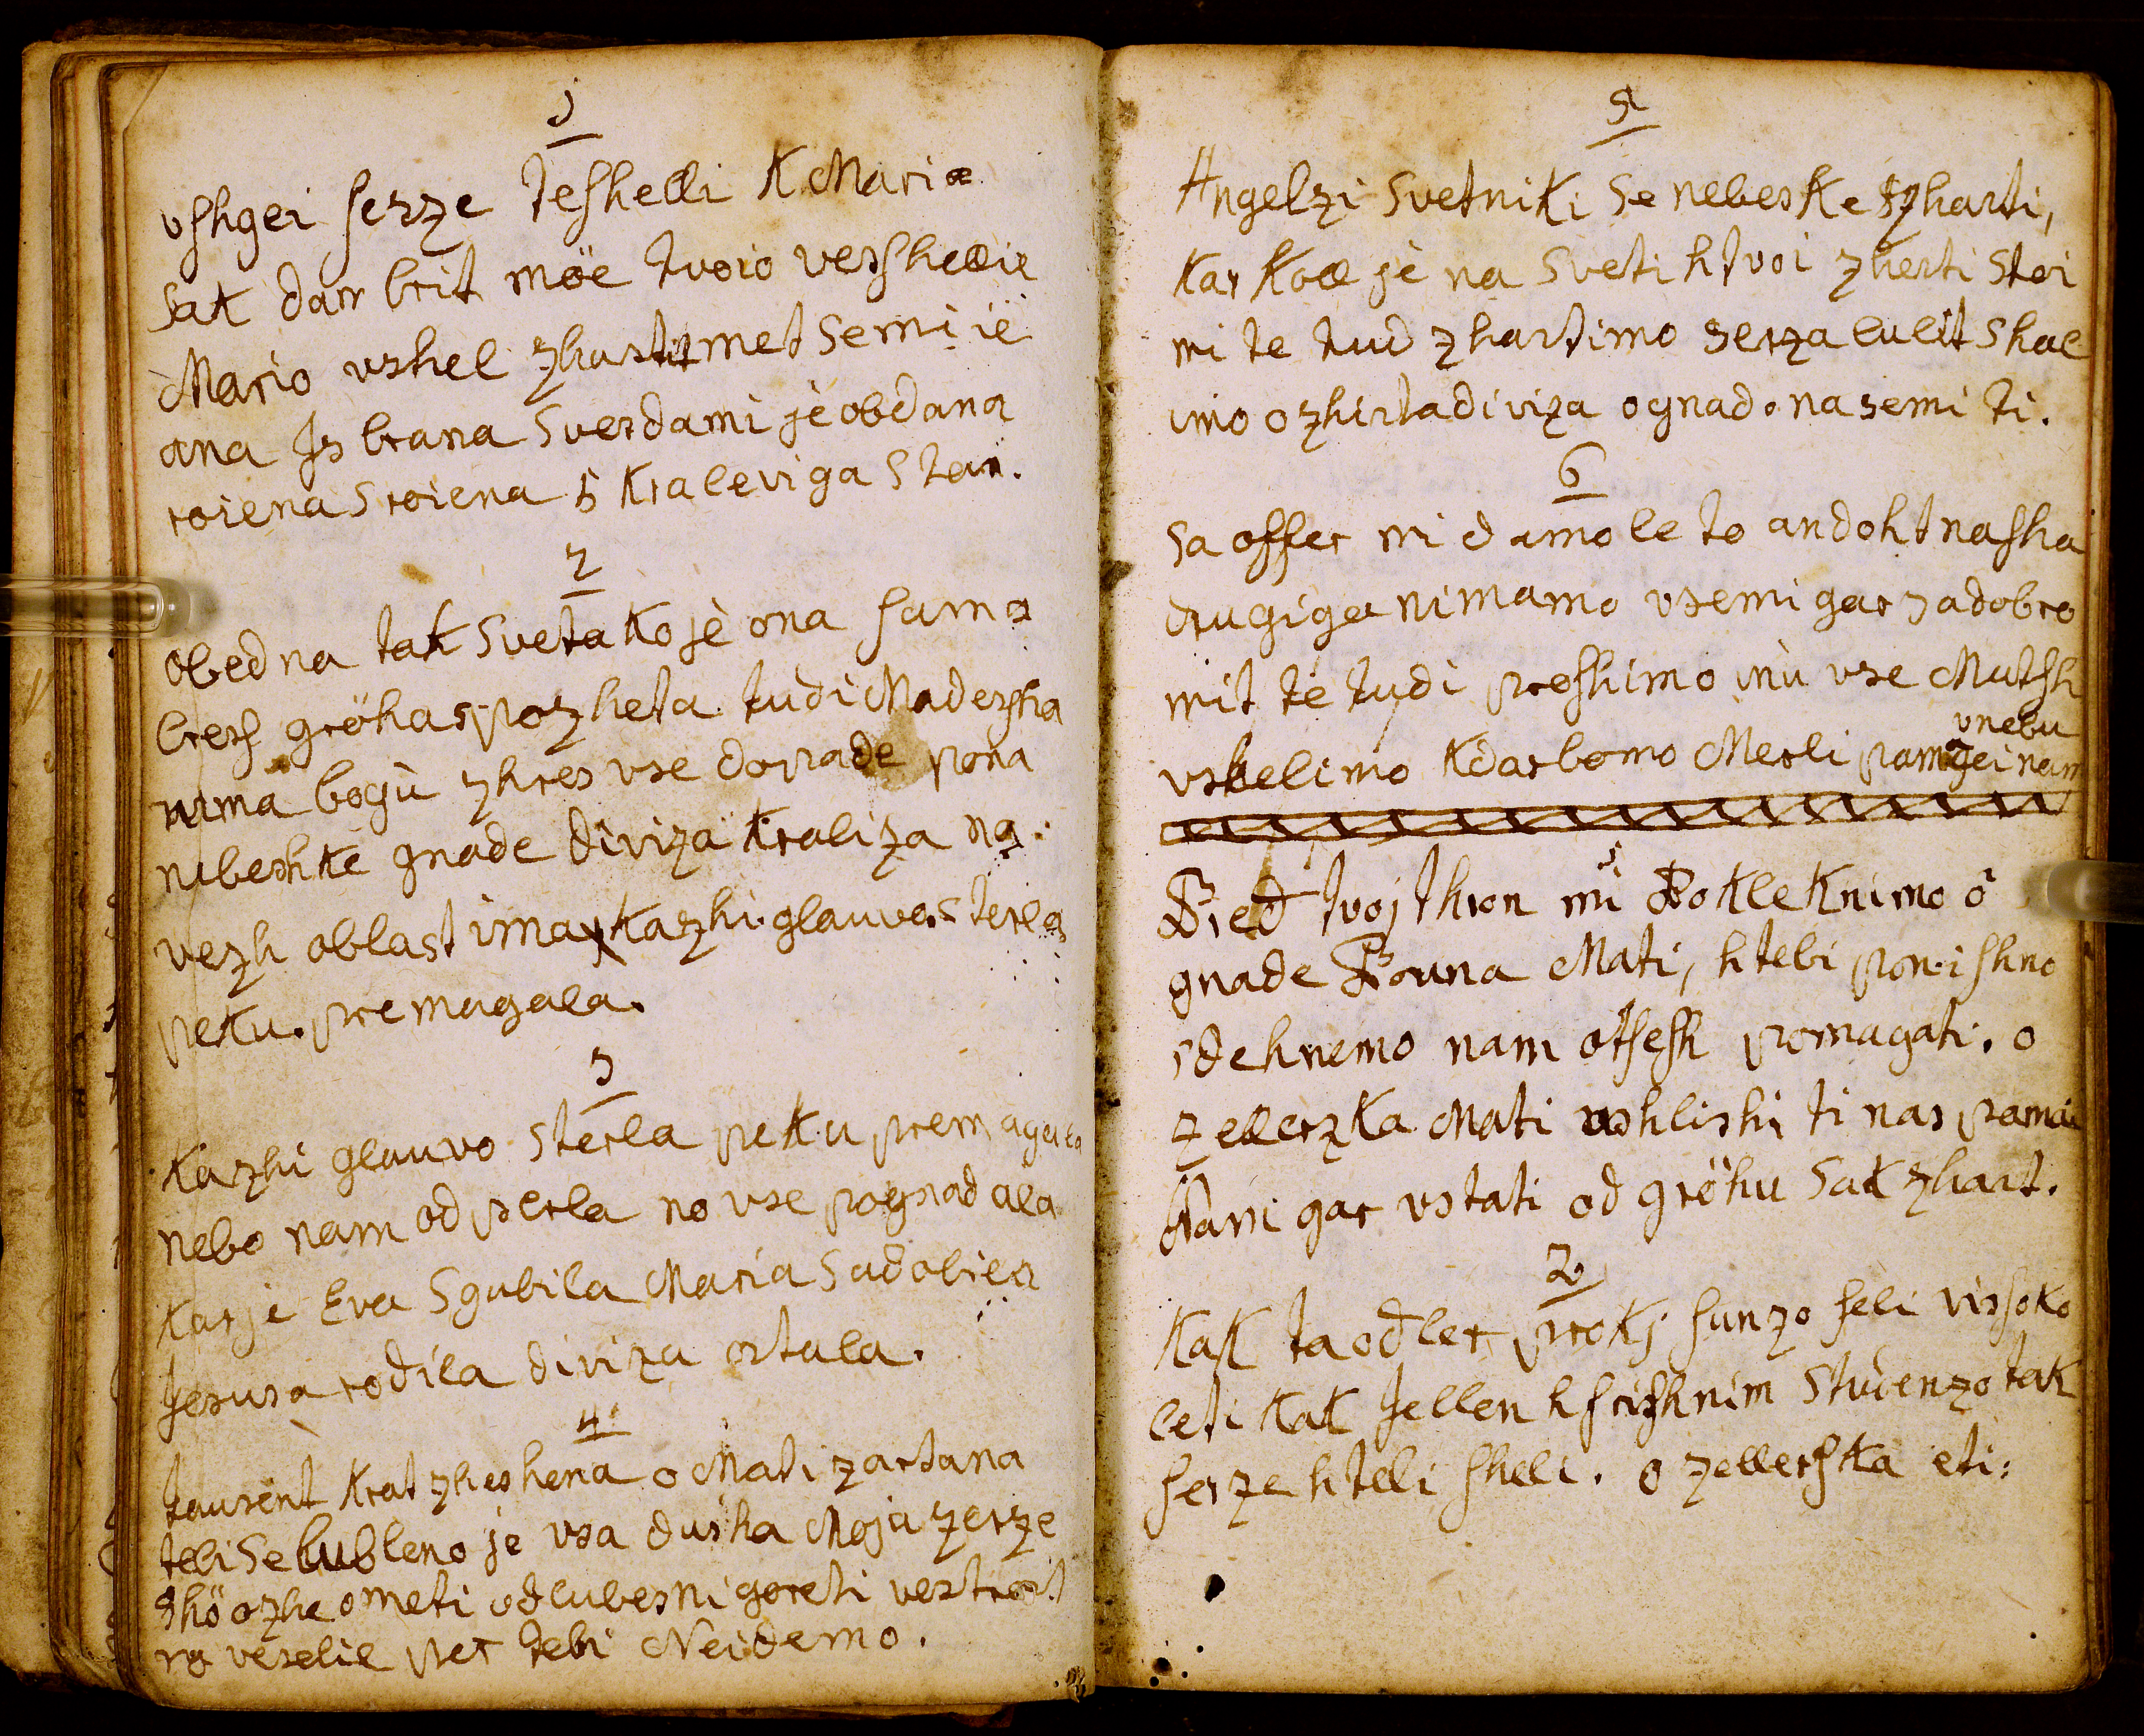 1
vshgei serze teshelli K Mariæ
sak dan brit möe tvoio vershellie
Mario vshel zhastit met semi ië
ana Is brana Sverdami jè obdana
roiena Sroiena is Kraleviga Stan.
2
obedna tak Sveta Ko jè ona sama
bres gröha spozheta tudi Madersha
nima bogù zhres vse dopade pona
nebeshke gnade diviza Kraliza na
vezh oblast ima Kazhi glauvo Sterla
peku premagala.
3
Kazhi glauvo Sterla peku premagala
nebo nam odperla no vse pognadala
Kar je Eva Sgubila Maria Sadobila
Jesusa rodila diviza ostala.
4
taurent Krat zheshena o Mati zartana
tebi Se lubleno je vsa dusha Moja zerze
shö ozhe ometi od lubesni goreti vestrost
no veselie per tebi Neidemo.
5
Angelzi Svetniki Se nebeske zharti,
Kar Koll jè na Sveti h tvoi zherti Stoi
mi te tud zhartimo serza lulit shal
imo o zhista diviza o gnado na semi ti.
6
Sa offer mi damo le to andoht nasha
drugiga nimamo vsemi gar sa dobro
mit té tudi proshimo inu vse Mutsh
vnebu
vshelimo Kdar bomo Merli pamgei nam
1
Pred tvoj thron mi Pokleknimo ô
gnade Pouna Mati, h tebi ponishno
sdehnemo nam otsesh pomagati. o
Zellerzka Mati ushlishi ti nas pamai
Nam gar vstati od gröhu Sak zhart.
2
Kak ta odler prokj sunzo seli vissoko
leti Kak Jellen h srishnim Studenzo tak
serze h tebi sheli. o zellershka eti: